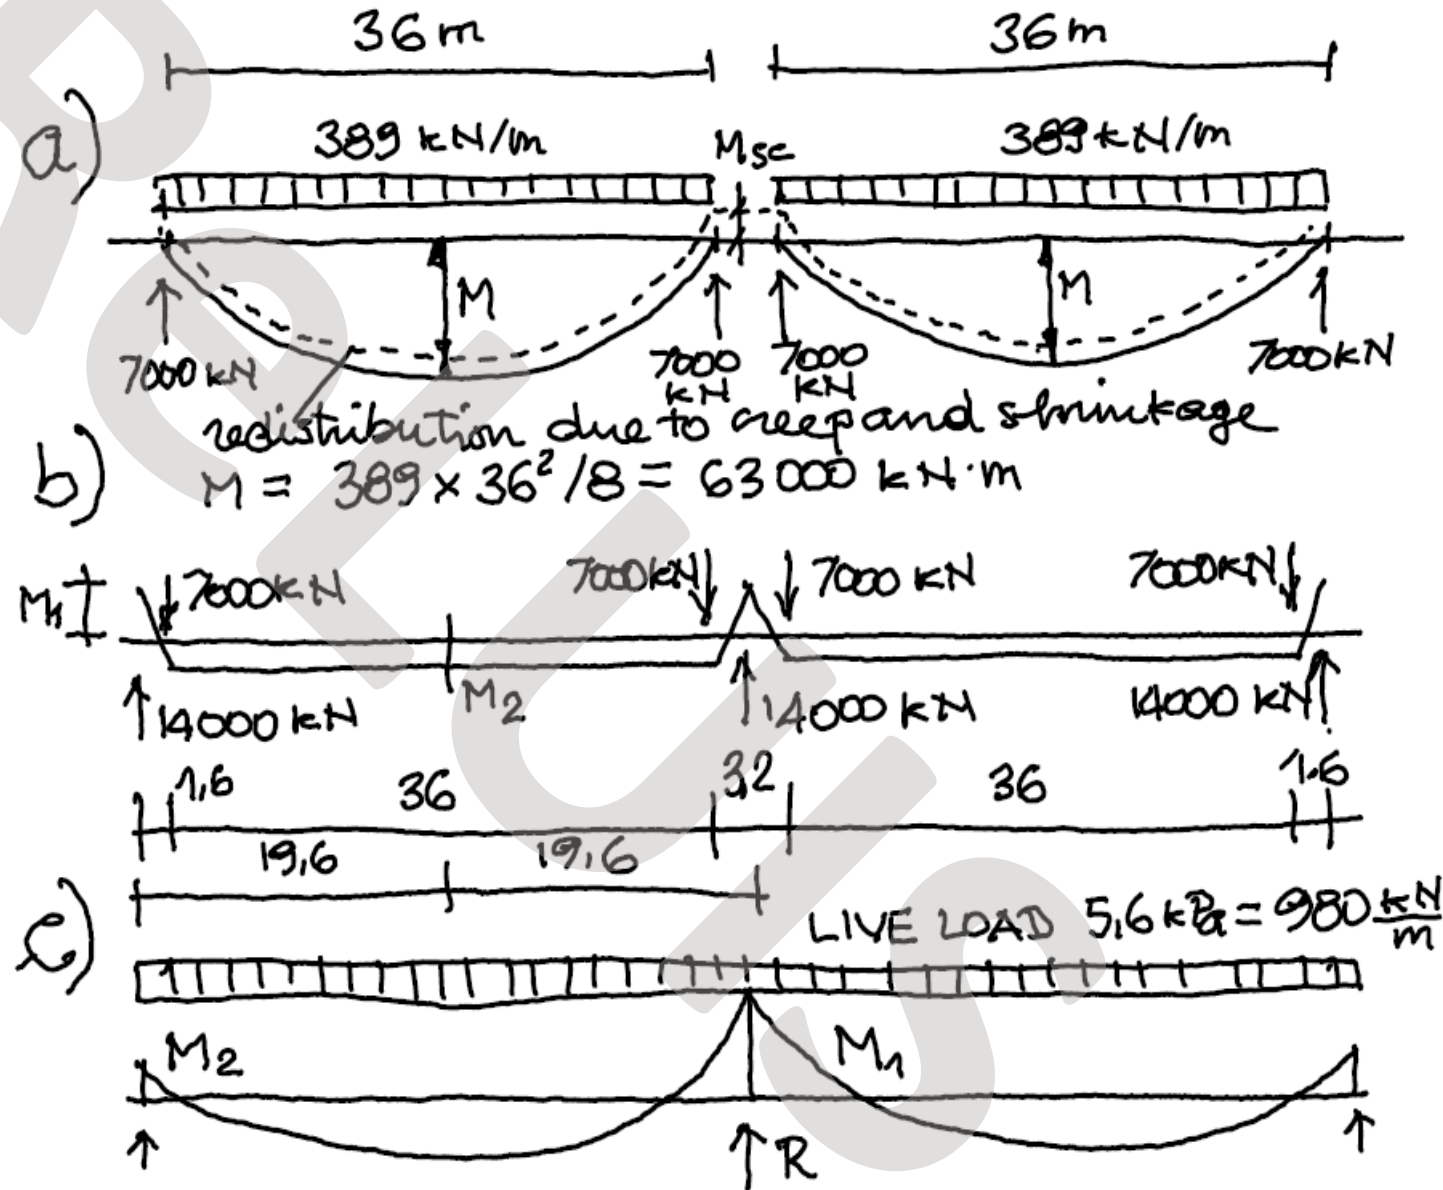 36m 36m
a)
389 kN/m Msc 389 kN/m
M M
7000 kN 7000 kN 7000 kN 7000 kN
redistribution due to creep and shrinkage
b) M = 389 × 36²/8 = 63 000 kN·m
7000 kN 7000 kN 7000 kN 7000 kN
M₂
14000 kN 14000 kN 14000 kN
1,6 36 3,2 36 1.6
19,6 19,6
c) LIVE LOAD 5,6 kPa = 980 kN/m
M₂ M₁
R